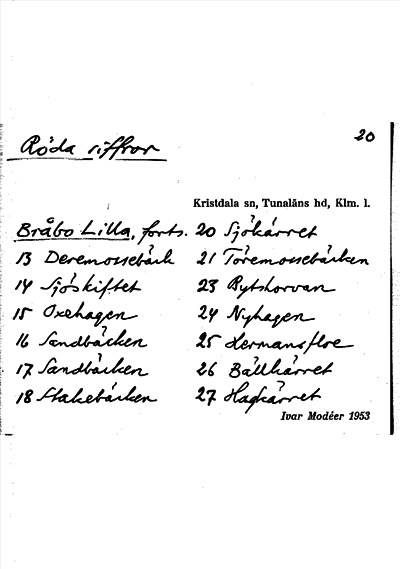 20
Röda siffror
Kristdala sn, Tunaläns hd, Klm. l.
Bråbo Lilla, forts.
13 Deremossebäck
14 Sjöskiftet
15 Oxehagen
16 Sandbäcken
17 Sandbäcken
18 Stakebäcken
20 Sjökärret
21 Töremossebäcken
23 Rytshorvan
24 Nyhagen
25 Hermansfloe
26 Bällkärret
27 Hagkärret
Ivar Modéer 1953